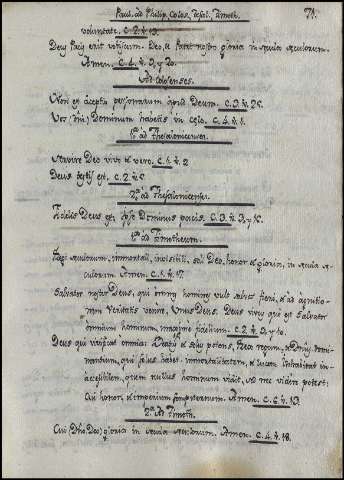 Paul. ad Philip. Colos. Tesal. Timoth. 71.
voluntate. C. 2. v. 13.
Deus Pacis erit vobiscum. Deo, et Patri nostro gloria in secula seculorum.
Amen. C. 4. v. 9, y 20.
Ad Colosenses.
Non est acceptio personarum apud Deum. C. 3. v. 25.
Vos Dominum habetis in celo. C. 4. v. 1.
1ª ad Thesalonicenses.
Servire Deo vivo et vero. C. 1. v. 9
Deus testis est. C. 2. v. 5.
2ª ad Thesalonicenses.
Fidelis Deus est, Ipse Dominus pacis. C. 3. v. 3, y 16.
1ª ad Timotheum.
Regi seculorum, immortali, invisibili, soli Deo, honor et gloria, in secula se-
culorum Amen. C. 1. v. 17.
Salvator noster Deus, qui omnes homines vult salvos fieri, et ad agnitionem
veritatis venire. Unus Deus. Deus vivus qui est Salvator
omnium hominum, maxime fidelium. C. 2. v.
Deus qui vivificat omnia: Beatus et solus potens, Rex regum, et Dominus domi-
nantium, qui solus habet immortalitatem, et lucem inhabitat in-
accesibilem, quem nullus hominum vidit, sed nec videre potest:
Cui honor, et imperium sempiternum. Amen. C. 6. v. 13.
2ª Ad Timoth.
Cui (Deo) gloria in secula seculorum. Amen. C. 4. v. 18.